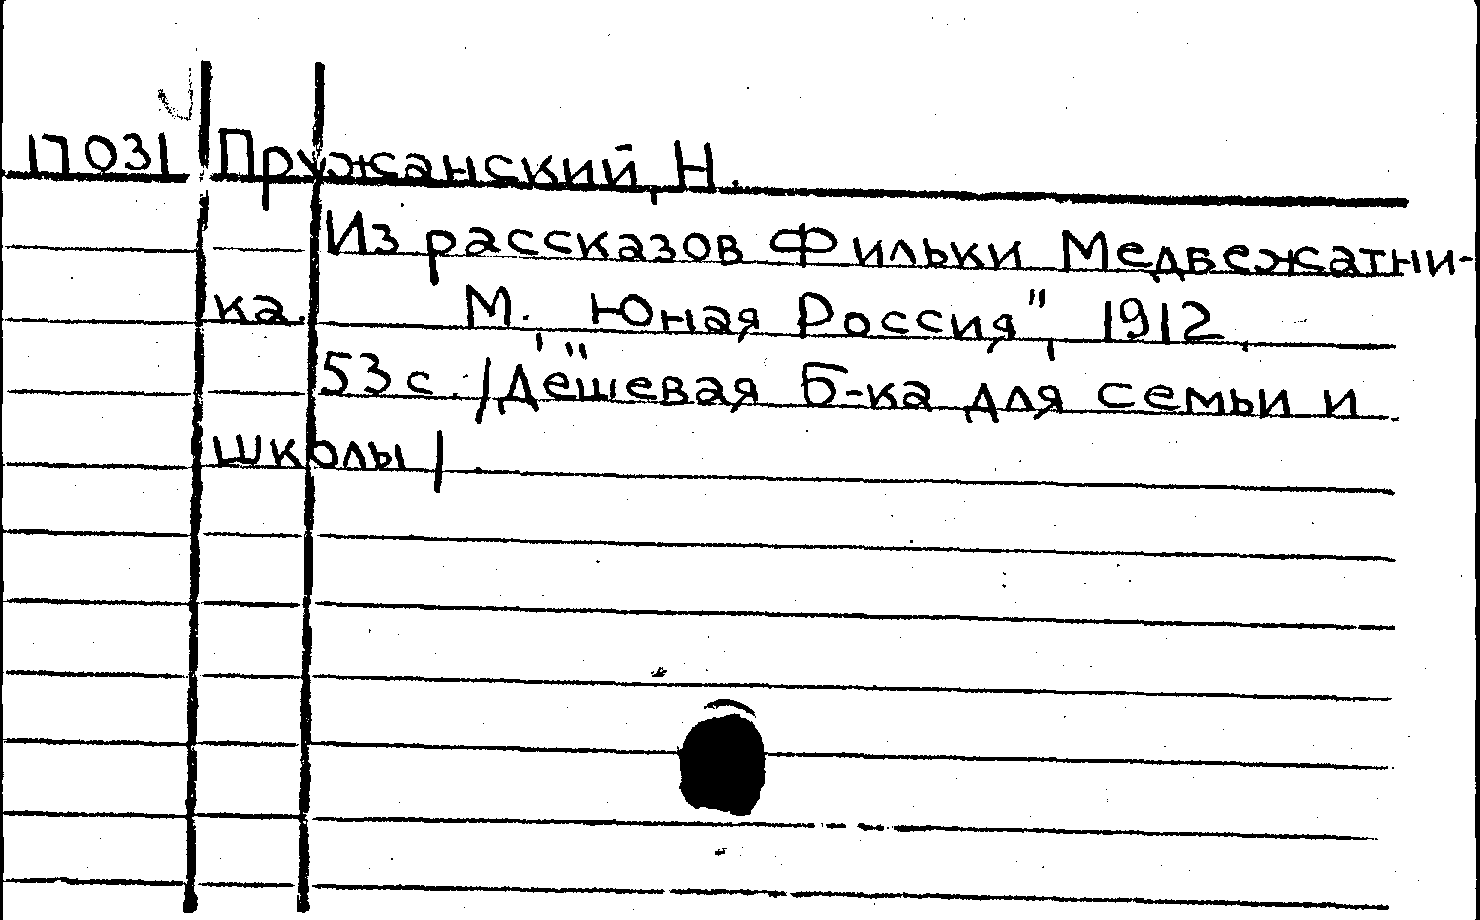 17031 Пружанский, Н.
Из рассказов Фильки Медвежатни-
ка. М., „Юная Россия", 1912,
53 с. /Дешевая б-ка для семьи и
школы/